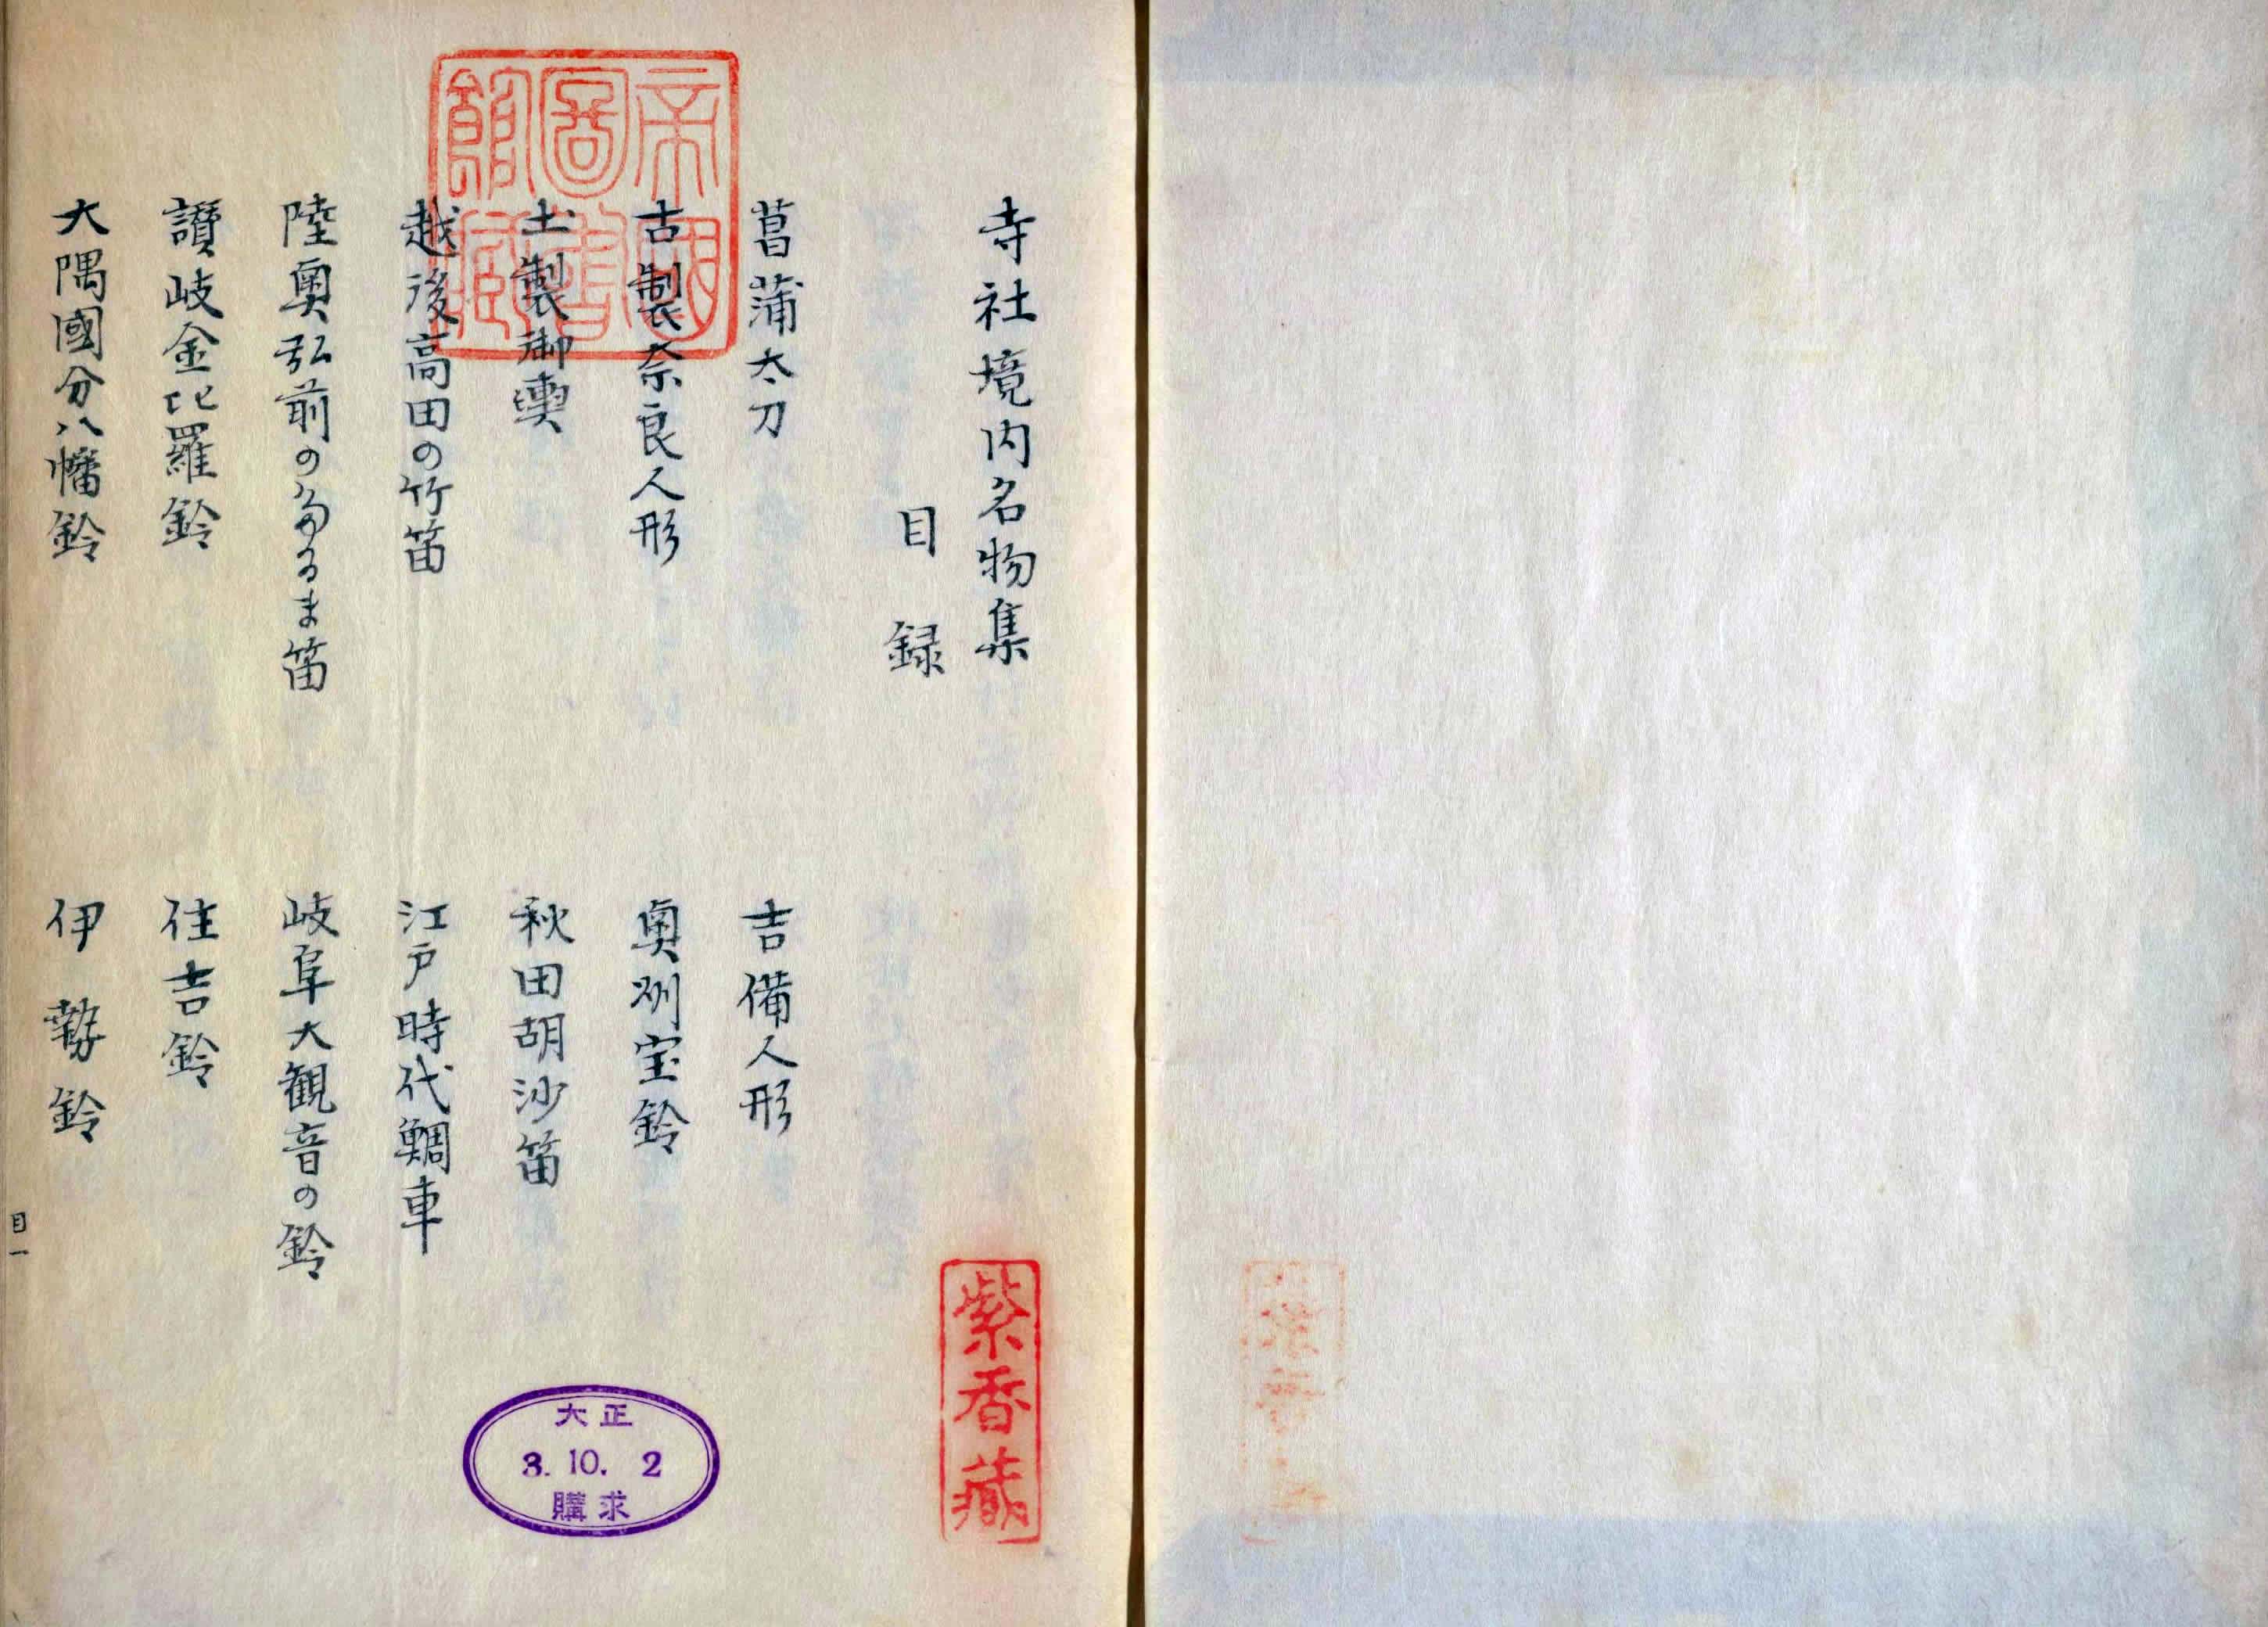 寺社境内名物集
目録
菖蒲太刀　吉備人形
古製奈良人形　奥州宝鈴
土製御輿　秋田胡沙笛
越後高田の竹笛　江戸時代鯛車
陸奥弘前の多るま笛　岐阜大観音の鈴
讃岐金比羅鈴　住吉鈴
大隅國分八幡鈴　伊勢鈴
目一
帝國
圖書
館藏
紫香蔵
大正
3. 10. 2
購求